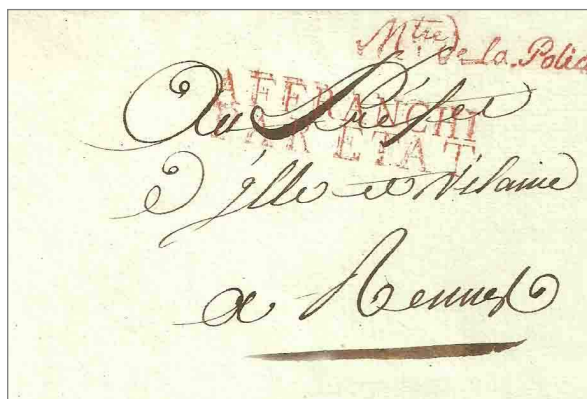 Mtre de la Polic
AFFRANCHI
PAR ETAT
Au Préfet
d'Ille et Vilaine
a Rennes